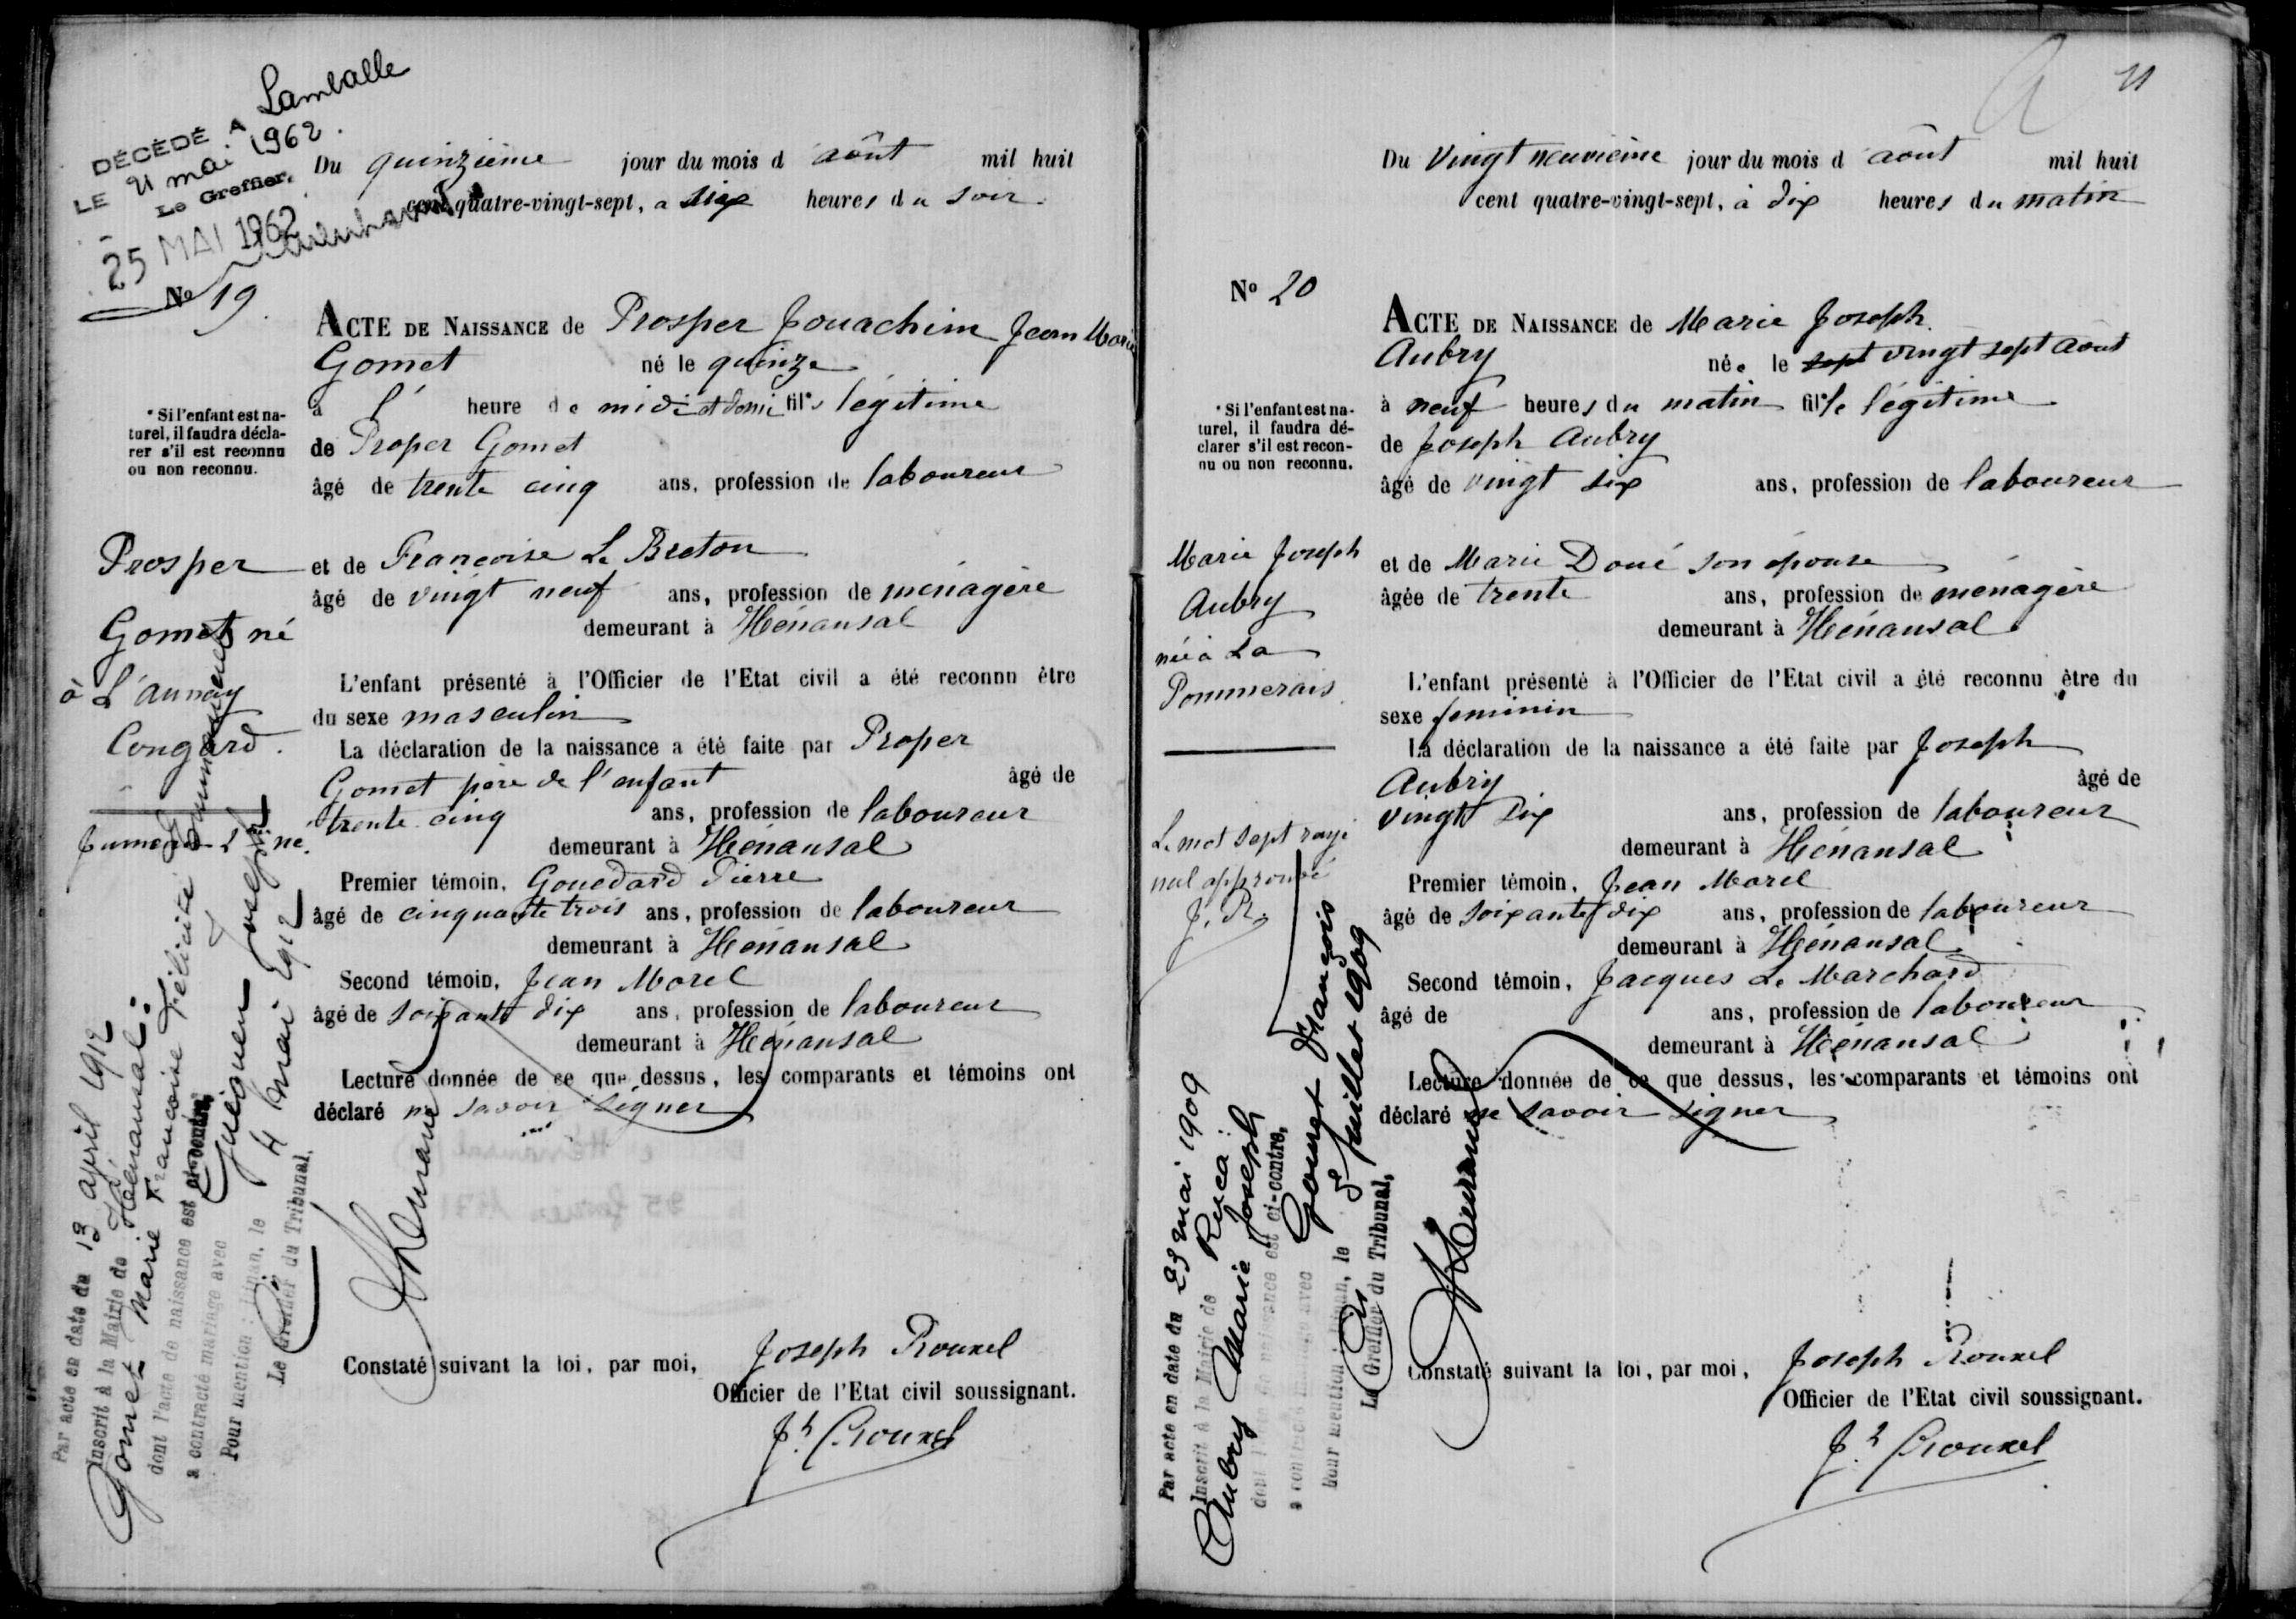 DÉCÉDÉ A Lamballe
LE 21 mai 1962.
Le Greffier,
25 MAI 1962
Du quinzième jour du mois d août mil huit
cent quatre-vingt-sept, à six heures du soir
No 19.
ACTE DE NAISSANCE de Prosper Jouachim Jean Marie
Gomet né le quinze
à l' heure de midi et demi fils légitime
de Proper Gomet
âgé de trente cinq ans, profession de laboureur
* Si l'enfant est na-
turel, il faudra décla-
rer s'il est reconnu
ou non reconnu.
Prosper
Gomet né
à L'aunay
Congard.
Jumeau né.
et de Françoise Le Breton
âgé de vingt neuf ans, profession de ménagère
demeurant à Hénansal
L'enfant présenté à l'Officier de l'Etat civil a été reconnu être
du sexe masculin
La déclaration de la naissance a été faite par Proper
Gomet père de l'enfant âgé de
trente cinq ans, profession de laboureur
demeurant à Hénansal
Premier témoin, Gouedard Pierre
âgé de cinquante trois ans, profession de laboureur
demeurant à Hénansal
Second témoin, Jean Morel
âgé de soixante dix ans, profession de laboureur
demeurant à Hénansal
Lecture donnée de ce que dessus, les comparants et témoins ont
déclaré ne savoir signer
Constaté suivant la loi, par moi, Joseph Rouxel
Officier de l'Etat civil soussignant.
Jh. Rouxel
Par acte en date du 13 april 1912
Inscrit à la Mairie de Hénansal:
Gomet Marie Françoise Félicité
dont l'acte de naissance est ci-contre,
a contracté mariage avec Guéguen Joseph
Pour mention: Dinan, le 4 mai 1912
Le Greffier du Tribunal,
21
Du vingt neuvième jour du mois d août mil huit
cent quatre-vingt-sept, à dix heures du matin
No 20
ACTE DE NAISSANCE de Marie Joseph
Aubry née le sept vingt sept août
à neuf heures du matin fille légitime
de Joseph Aubry
âgé de vingt six ans, profession de laboureur
* Si l'enfant est na-
turel, il faudra dé-
clarer s'il est recon-
nu ou non reconnu.
Marie Joseph
Aubry
née à La
Pommerais.
Le mot sept rayé
nul approuvé
J. R.
et de Marie Doué son épouse
âgée de trente ans, profession de ménagère
demeurant à Hénansal
L'enfant présenté à l'Officier de l'Etat civil a été reconnu être du
sexe feminin
La déclaration de la naissance a été faite par Joseph
Aubry âgé de
vingt six ans, profession de laboureur
demeurant à Hénansal
Premier témoin, Jean Morel
âgé de soixante dix ans, profession de laboureur
demeurant à Hénansal
Second témoin, Jacques Le Marchand
âgé de ans, profession de laboureur
demeurant à Hénansal
Lecture donnée de ce que dessus, les comparants et témoins ont
déclaré ne savoir signer
Constaté suivant la loi, par moi, Joseph Rouxel
Officier de l'Etat civil soussignant.
Jh. Rouxel
Par acte en date du 23 mai 1909
Inscrit à la Mairie de Ruca
Aubry Marie Joseph
dont l'acte de naissance est ci-contre,
a contracté mariage avec Gouret François
Pour mention: Dinan, le 5 juillet 1909
Le Greffier du Tribunal,